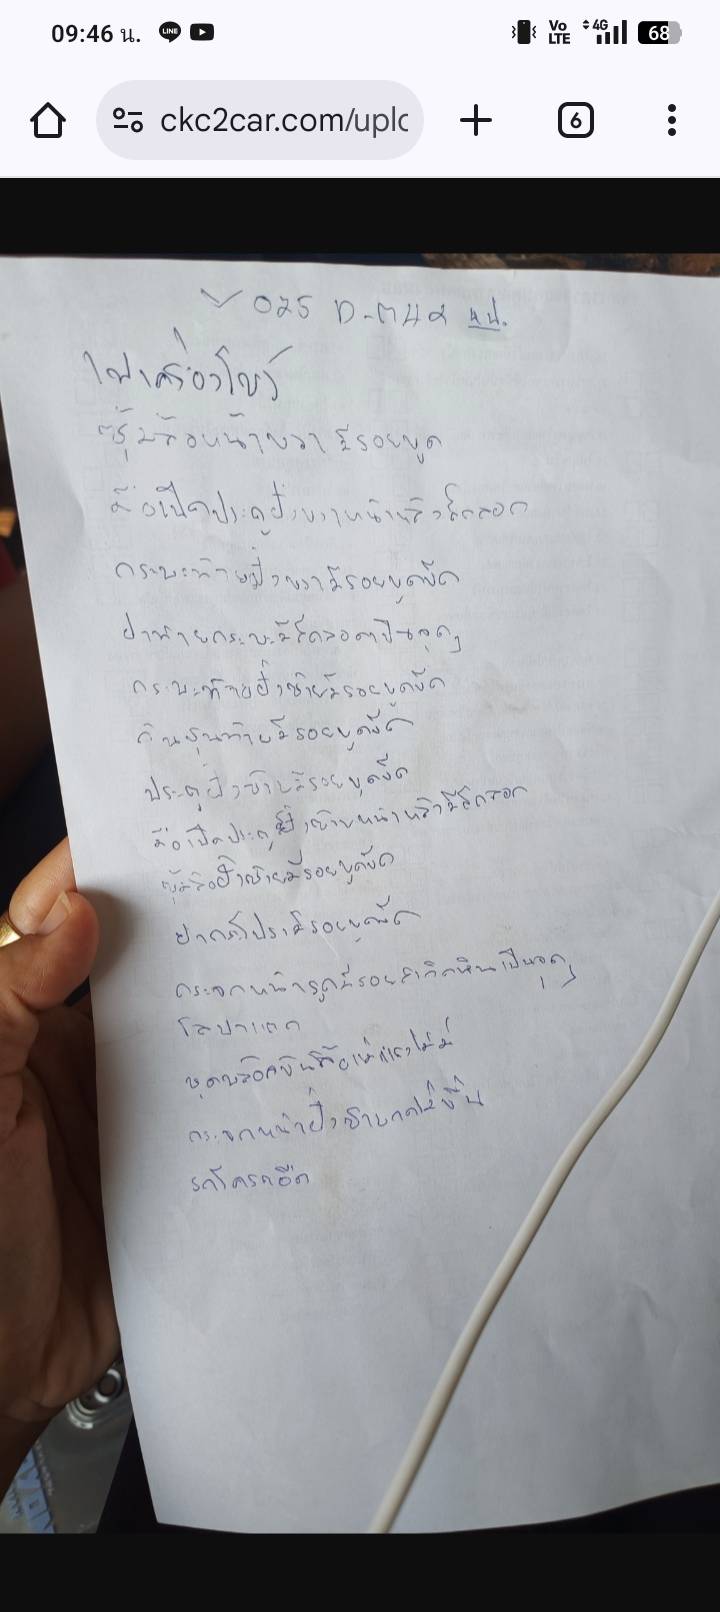 09:46 น.
LINE
Vo LTE
4G
68
ckc2car.com/uplo
6
025 D-
ไฟเครื่องโชว์
ซุ้มล้อหน้าขวามีรอยขูด
มือเปิดประตูฝั่งขวาหน้าหลังสีถลอก
กระบะท้ายฝั่งขวามีรอยขูดขีด
ฝาท้ายกระบะมีสีถลอกเป็นจุดๆ
กระบะท้ายฝั่งซ้ายมีรอยขูดขีด
กันชนท้ายมีรอยขูดขีด
ประตูฝั่งซ้ายมีรอยขูดขีด
มือเปิดประตูฝั่งซ้ายหน้าหลังมีสีถลอก
ซุ้มล้อฝั่งซ้ายมีรอยขูดขีด
ฝากระโปรงมีรอยขูดขีด
กระจกหน้ารถมีรอยสะเก็ดหินเป็นจุดๆ
โลปาแตก
ชุดบล็อคขันล้อแม่แรงไม่มี
กระจกหน้าฝั่งซ้ายกดไม่ขึ้น